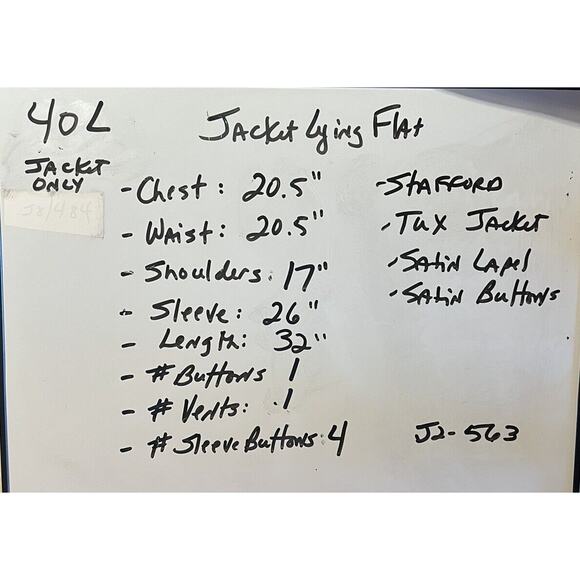 40L
Jacket Lying Flat
Jacket
Only
- Chest: 20.5"
- Waist: 20.5"
- Shoulders: 17"
- Sleeve: 26"
- Length: 32"
- # Buttons 1
- # Vents: 1
- # Sleeve Buttons: 4
- Stafford
- Tux Jacket
- Satin Lapel
- Satin Buttons
J2-563